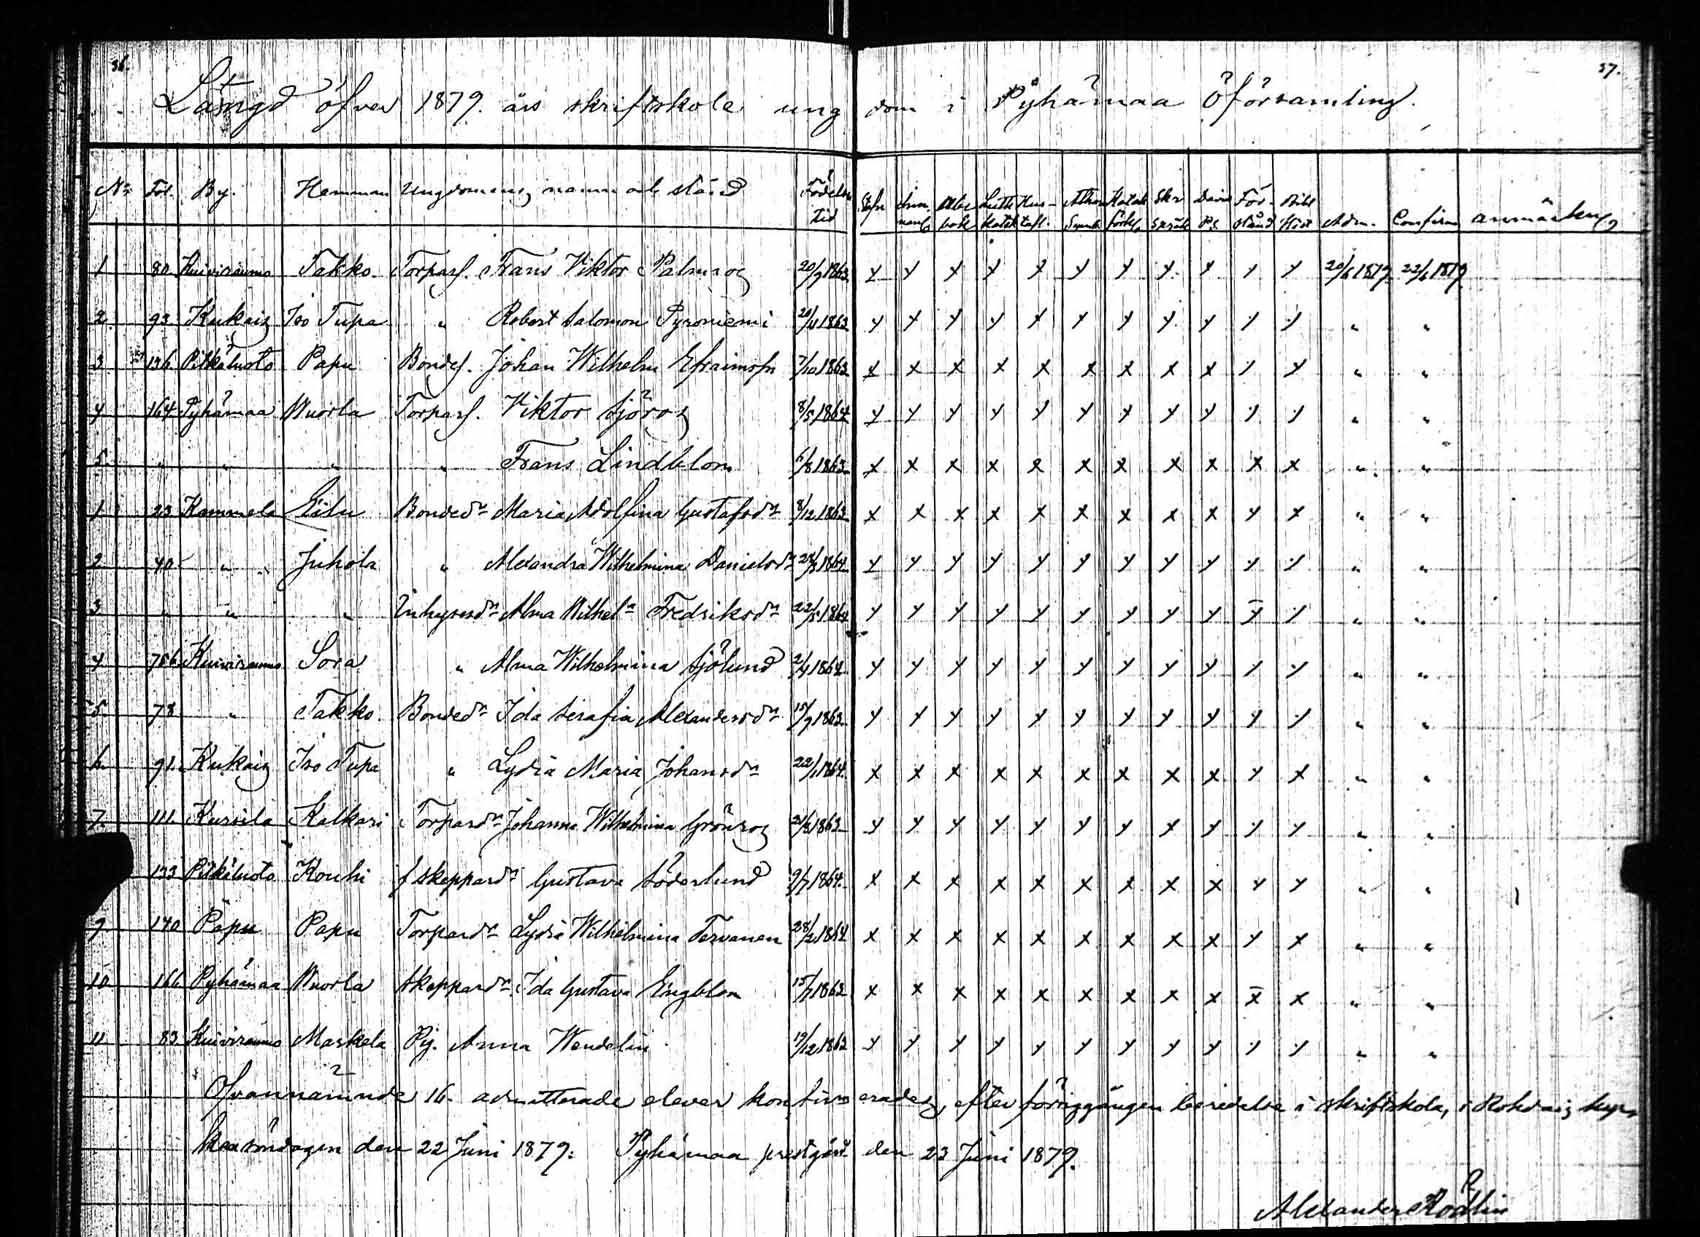 36. 37.
Längd öfver 1879. års skriftskole ung dom i Pyhämaa Öförsamling.
No Fol. By. Hemman Ungdomens namn och stånd Födelse tid Inn. nanl. Abc bok Luth. katek. Hus tafl. Athan Symb. Förkl. Skr språk David Ps. För stånd Bibl Hist Adm. Confirm anmärkng.
1 80 Kuivirauma Takko Torpars. Frans Viktor Palmros 20/9 1863 x x x x x x x x x x x 20/6 1879 22/6 1879
2 93 Kukais Iso Tupa " Robert Salomon Pyroniemi 20/11 1863 x x x x x x x x x x x " "
3 136 Pitkäluoto Papu Bondes. Johan Wilhelm Efraimsfn 7/10 1863 x x x x x x x x x x x " "
4 164 Pyhämaa Wuorla Torpars. Viktor Sjöros 8/5 1864 x x x x x x x x x x x " "
5 " " " " Frans Lindblom 6/8 1863 x x x x x x x x x x x " "
1 23 Kammela Eilu Bonded:r Maria Adolfina Gustafsd:r 8/12 1863 x x x x x x x x x x x " "
2 40 " Juhola " Alexandra Wilhelmina Danielsd:r 1864 x x x x x x x x x x x " "
3 " " " Inhysesd:r Alma Wilhel:a Fredriksd:r 22/5 1864 x x x x x x x x x x̄ x " "
4 Kuivirauma Sora " Alma Wilhelmina Sjölund 2/4 1864 x x x x x x x x x x x " "
5 78 " Takko Bonded:r Ida Serafia Alexandersd:r 15/9 1863 x x x x x x x x x x x " "
6 91 Kukais Iso Tupa " Lydia Maria Johansd:r 22/1 1864 x x x x x x x x x x x " "
7 111 Kursila Kalkari Torpard:r Johanna Wilhelmina Grönros 1863 x x x x x x x x x x x " "
133 Pitkäluoto Kouhi f skeppard:r Gustava Söderlund 9/7 1864 x x x x x x x x x x x " "
9 140 Papu Papu Torpard:r Lydia Wilhelmina Tervanen 28/2 1864 x x x x x x x x x x x " "
10 166 Pyhämaa Wuorla Skeppard:r Ida Gustava Engblom 15/7 1863 x x x x x x x x x x̄ x " "
11 83 Kuivirauma Markela Pig. Anna Wendelin 19/12 1863 x x x x x x x x x x x " "
Ofvannämnde 16 admitterade elever konfirmerades, efter föregången beredelse i skriftskola, i Rohdais kyr-
ka söndagen den 22 Juni 1879. Pyhämaa prestgård den 23 Juni 1879.
Alexander Rödlin